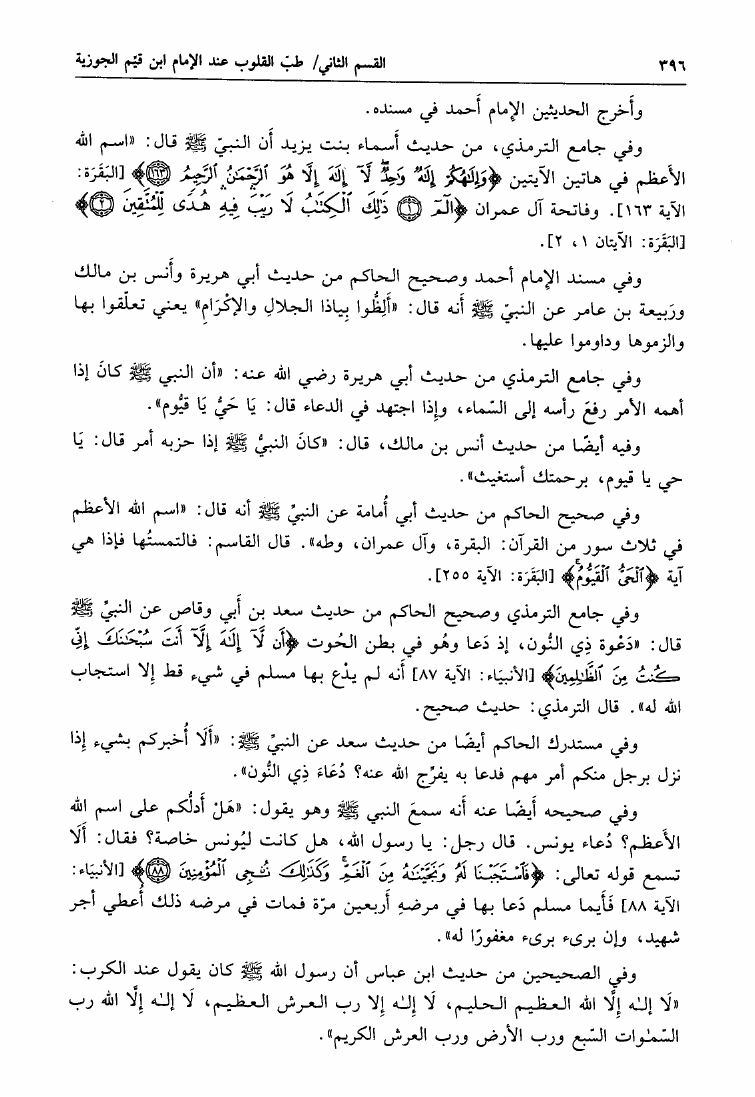 ٣٩٦ القسم الثاني/ طبّ القلوب عند الإمام ابن قيّم الجوزية
وأَخرج الحديثين الإمام أَحمد في مسنده.
وفي جامع الترمذي، من حديث أَسماء بنت يزيد أَن النبيّ ﷺ قال: «اسم الله
الأَعظم في هاتين الآيتين ﴿وَإِلَٰهُكُمْ إِلَٰهٌ وَٰحِدٌ لَّآ إِلَٰهَ إِلَّا هُوَ ٱلرَّحْمَٰنُ ٱلرَّحِيمُ ﴿١٦٣﴾﴾ [البَقَرَة:
الآية ١٦٣]. وفاتحة آل عمران ﴿الٓمٓ ﴿١﴾ ذَٰلِكَ ٱلْكِتَٰبُ لَا رَيْبَ فِيهِ هُدًى لِّلْمُتَّقِينَ ﴿٢﴾﴾
[البَقَرَة: الآيتان ١، ٢].
وفي مسند الإمام أحمد وصحيح الحاكم من حديث أبي هريرة وأَنس بن مالك
ورَبيعة بن عامر عن النبيّ ﷺ أَنه قال: «أَلِظُّوا بِياذا الجلالِ والإكْرَامِ» يعني تعلّقوا بها
والزموها وداوموا عليها.
وفي جامع الترمذي من حديث أبي هريرة رضي الله عنه: «أن النبي ﷺ كانَ إذا
أهمه الأمر رفعَ رأسه إلى السّماء، وإذا اجتهد في الدعاء قال: يَا حَيُّ يَا قيُّوم».
وفيه أيضًا من حديث أنس بن مالك، قال: «كانَ النبيُّ ﷺ إذا حزبه أمر قال: يَا
حي يا قيوم، برحمتك أستغيث».
وفي صحيح الحاكم من حديث أبي أُمامة عن النبيِّ ﷺ أنه قال: «اسم الله الأعظم
في ثلاث سور من القرآن: البقرة، وآل عمران، وطه». قال القاسم: فالتمستُها فإذا هي
آية ﴿ٱلْحَيُّ ٱلْقَيُّومُ﴾ [البَقَرَة: الآية ٢٥٥].
وفي جامع الترمذي وصحيح الحاكم من حديث سعد بن أَبي وقاص عن النبيِّ ﷺ
قال: «دَعْوة ذِي النُّون، إذ دَعا وهُو في بطن الحُوت ﴿أَن لَّآ إِلَٰهَ إِلَّآ أَنتَ سُبْحَٰنَكَ إِنِّى
كُنتُ مِنَ ٱلظَّٰلِمِينَ﴾ [الأنبيَاء: الآية ٨٧] أَنه لم يدْع بها مسلم في شيء قط إلا استجاب
الله له». قال الترمذي: حديث صحيح.
وفي مستدرك الحاكم أيضًا من حديث سعد عن النبيِّ ﷺ: «أَلَا أُخبركم بشيء إذا
نزل برجل منكم أمر مهم فدعا به يفرِّج الله عنه؟ دُعَاءَ ذِي النُّون».
وفي صحيحه أَيضًا عنه أَنه سمعَ النبي ﷺ وهو يقول: «هَلْ أَدلُّكم على اسم الله
الأعظم؟ دُعاء يونس. قال رجل: يا رسول الله، هل كانت ليُونس خاصة؟ فقال: أَلَا
تسمع قوله تعالى: ﴿فَٱسْتَجَبْنَا لَهُۥ وَنَجَّيْنَٰهُ مِنَ ٱلْغَمِّ ۚ وَكَذَٰلِكَ نُۨجِى ٱلْمُؤْمِنِينَ ﴿٨٨﴾﴾ [الأنبيَاء:
الآية ٨٨] فَأَيما مسلم دَعا بها في مرضهِ أَربعين مرّة فمات في مرضه ذلك أُعطي أجر
شهيد، وإن برىء برىء مغفورًا له».
وفي الصحيحين من حديث ابن عباس أن رسول الله ﷺ كان يقول عند الكرب:
«لَا إلـٰه إلَّا الله العظيم الحليم، لَا إلـٰه إلا رب العرش العظيم، لَا إلـٰه إلَّا الله رب
السّمـٰوات السّبع ورب الأرض ورب العرش الكريم».